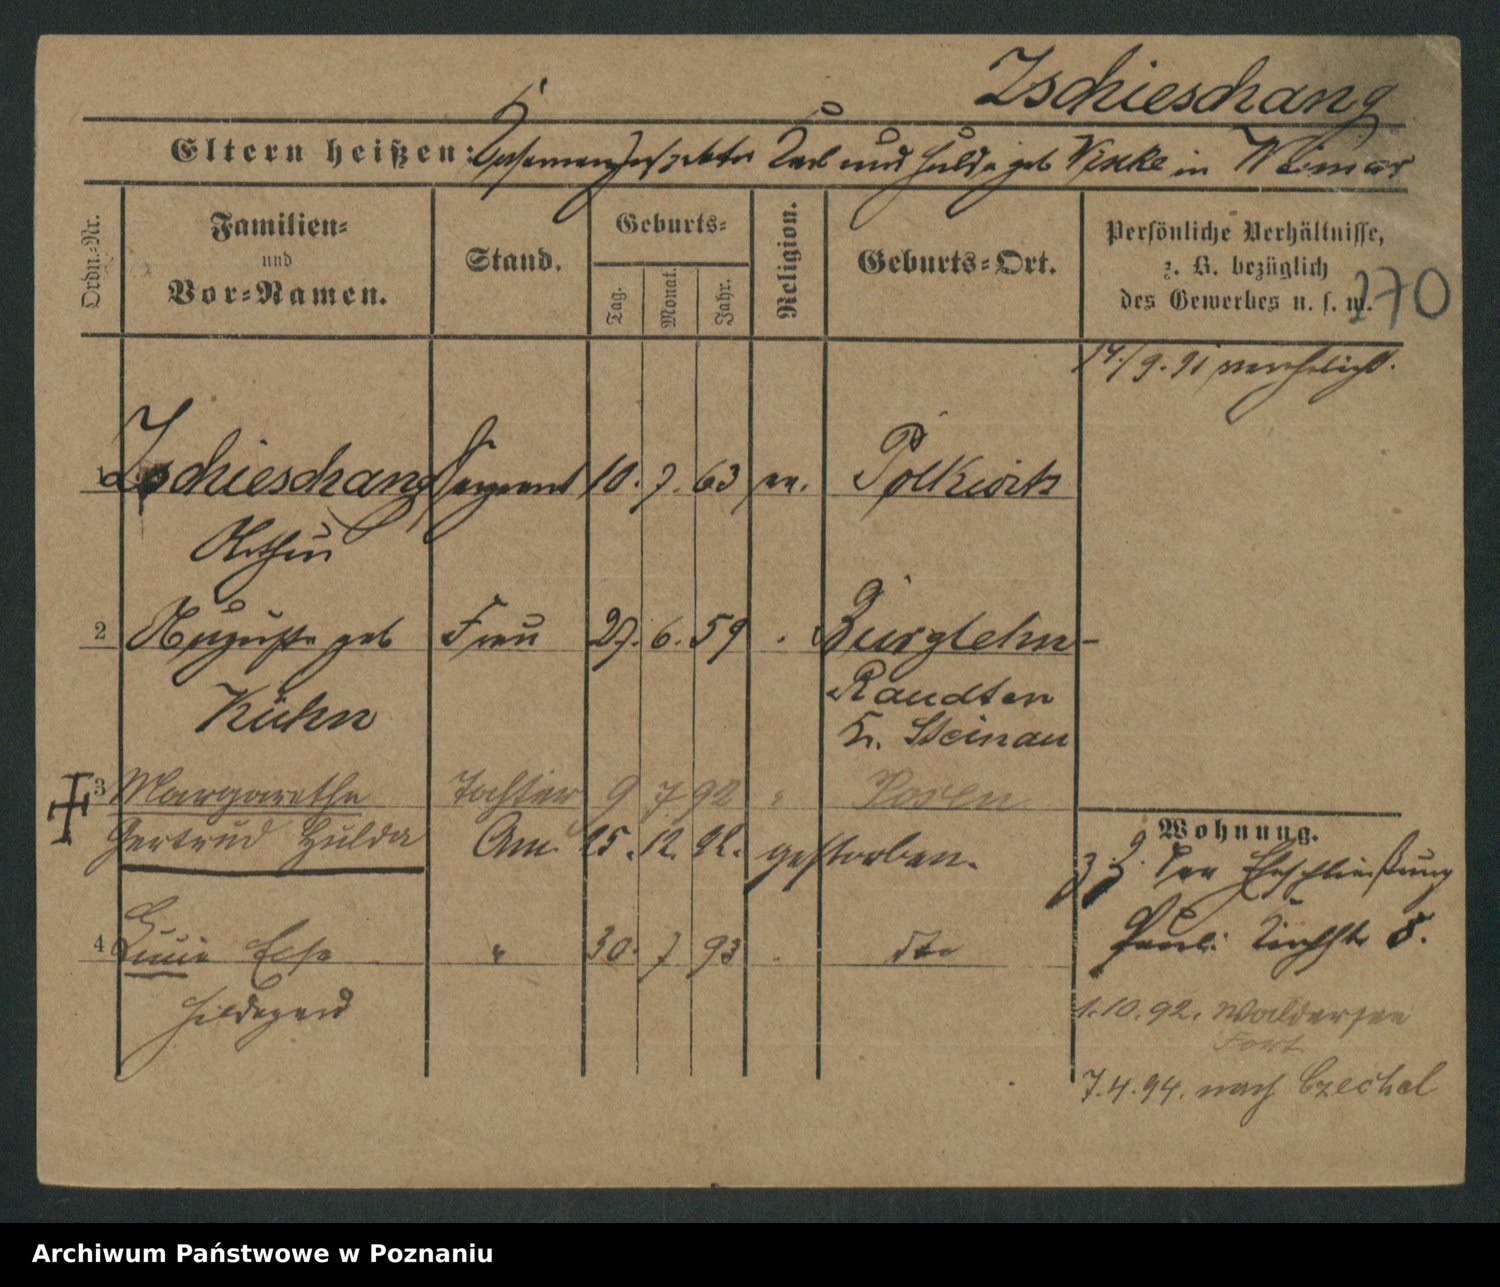 Zschieschang
Eltern heißen: Karl und Hulda geb in Weimar
Ordn.-Nr.
Familien-
und
Vor-Namen.
Stand.
Geburts-
Tag.
Monat.
Jahr.
Religion.
Geburts-Ort.
Persönliche Verhältnisse,
z. B. bezüglich
des Gewerbes u. s. w.
270
14./9.91 verehelicht.
1 Zschieschang Sergeant 10. 7. 63 ev. Polkwitz
Arthur
2 Auguste geb Frau 27. 6. 59 " Burglehn-
Kühn Raudten
Kr. Steinau
3 Margarethe Tochter 9 7. 92 " Posen
Gertrud Hulda Am 25. 12. 92. gestorben.
Wohnung.
z. Z. der Eheschließung
Pauli Kirchstr 8.
4 Luise Else " 30. 7 93 " dto
Hildegard
1.10.92. Waldersee
Fort
7.4.94. nach Czechel
Archiwum Państwowe w Poznaniu